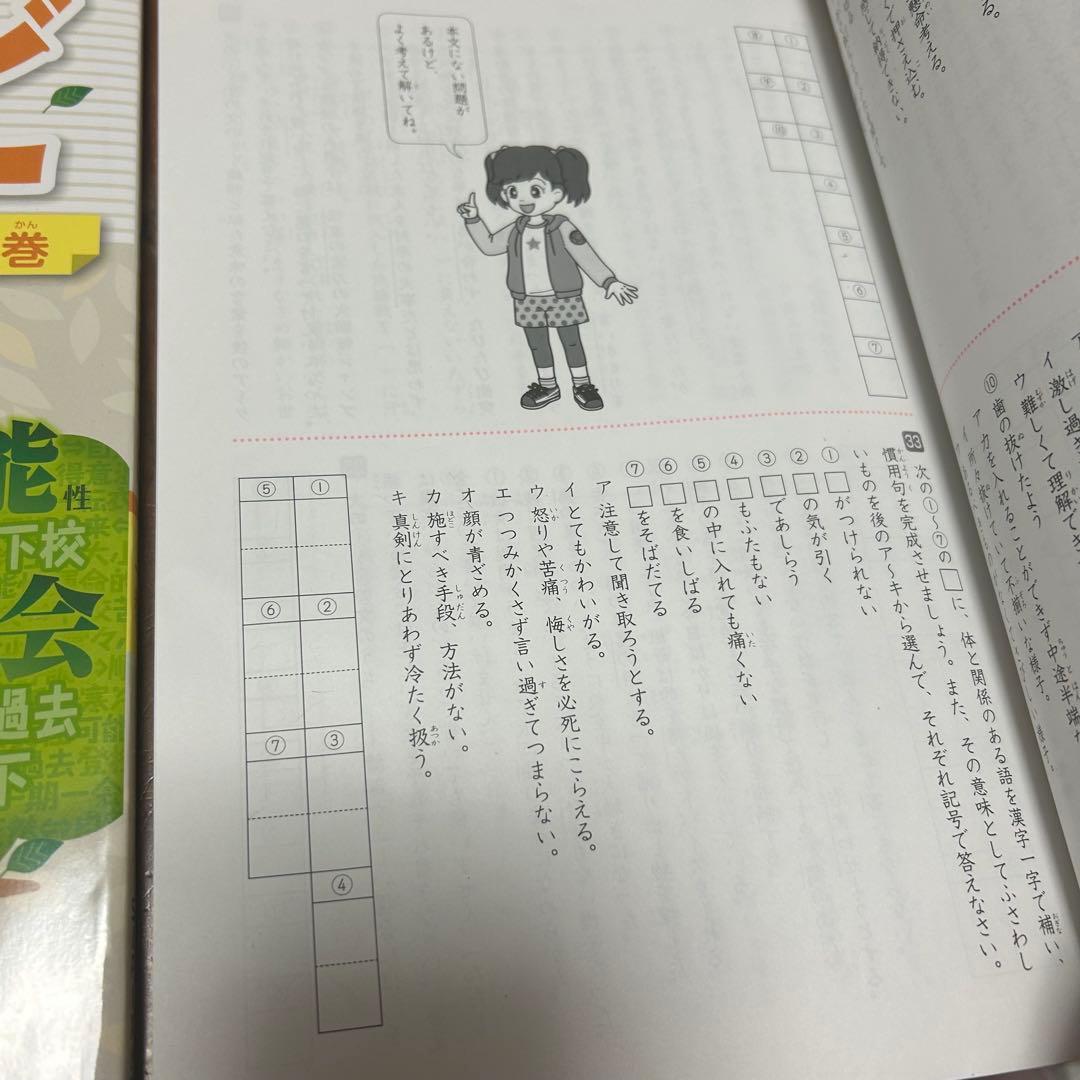 懸命考える。
⑩歯の抜けたよう
ア力を入れることができず中途半端
33 次の①～⑦の□に、体と関係のある語を漢字一字で補い、
慣用句を完成させましょう。また、その意味としてふさわし
いものを後のア～キから選んで、それぞれ記号で答えなさい。
①□がつけられない
②□の気が引く
③□であしらう
④□もふたもない
⑤□の中に入れても痛くない
⑥□を食いしばる
⑦□をそばだてる
ア注意して聞き取ろうとする。
イとてもかわいがる。
ウ怒りや苦痛、悔しさを必死にこらえる。
エつつみかくさず言い過ぎてつまらない。
オ顔が青ざめる。
カ施すべき手段、方法がない。
キ真剣にとりあわず冷たく扱う。
① ② ③ ④
⑤ ⑥ ⑦
① ② ③ ④ ⑤ ⑥ ⑦
⑧ ⑨ ⑩
本文にない問題が
あるけど、
よく考えて解いてね。
巻
能性
下校
会
過去
下